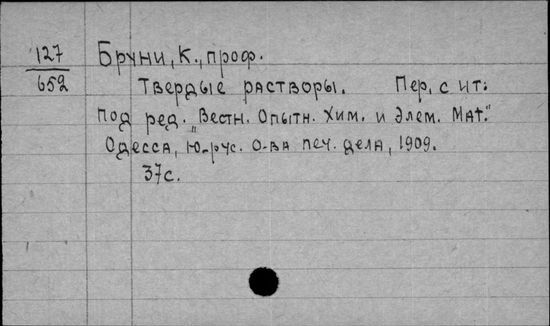 127 Бруни, К., проф.
652 Твердые растворы. Пер. с ит:
под ред. "Вестн. Опытн. Хим. и Элем. Мат."
Одесса, Ю-рус. о-ва печ. дела, 1909.
37с.